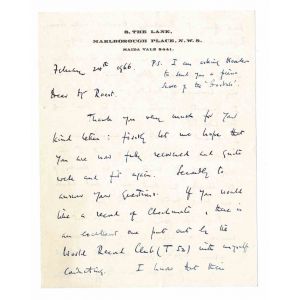 8, THE LANE,
MARLBOROUGH PLACE, N.W.8.
MAIDA VALE
February 24th 1966.
P.S. I am asking
to send you a
score of the
Dear Mr
Thank you very much for your
kind letter: firstly let me hope that
you are now fully recovered and quite
well and fit again. Secondly to
answer your questions. If you would
like a record of Checkmate, there is
an excellent one put out by the
World Record Club (T 52) with myself
conducting. I know that their